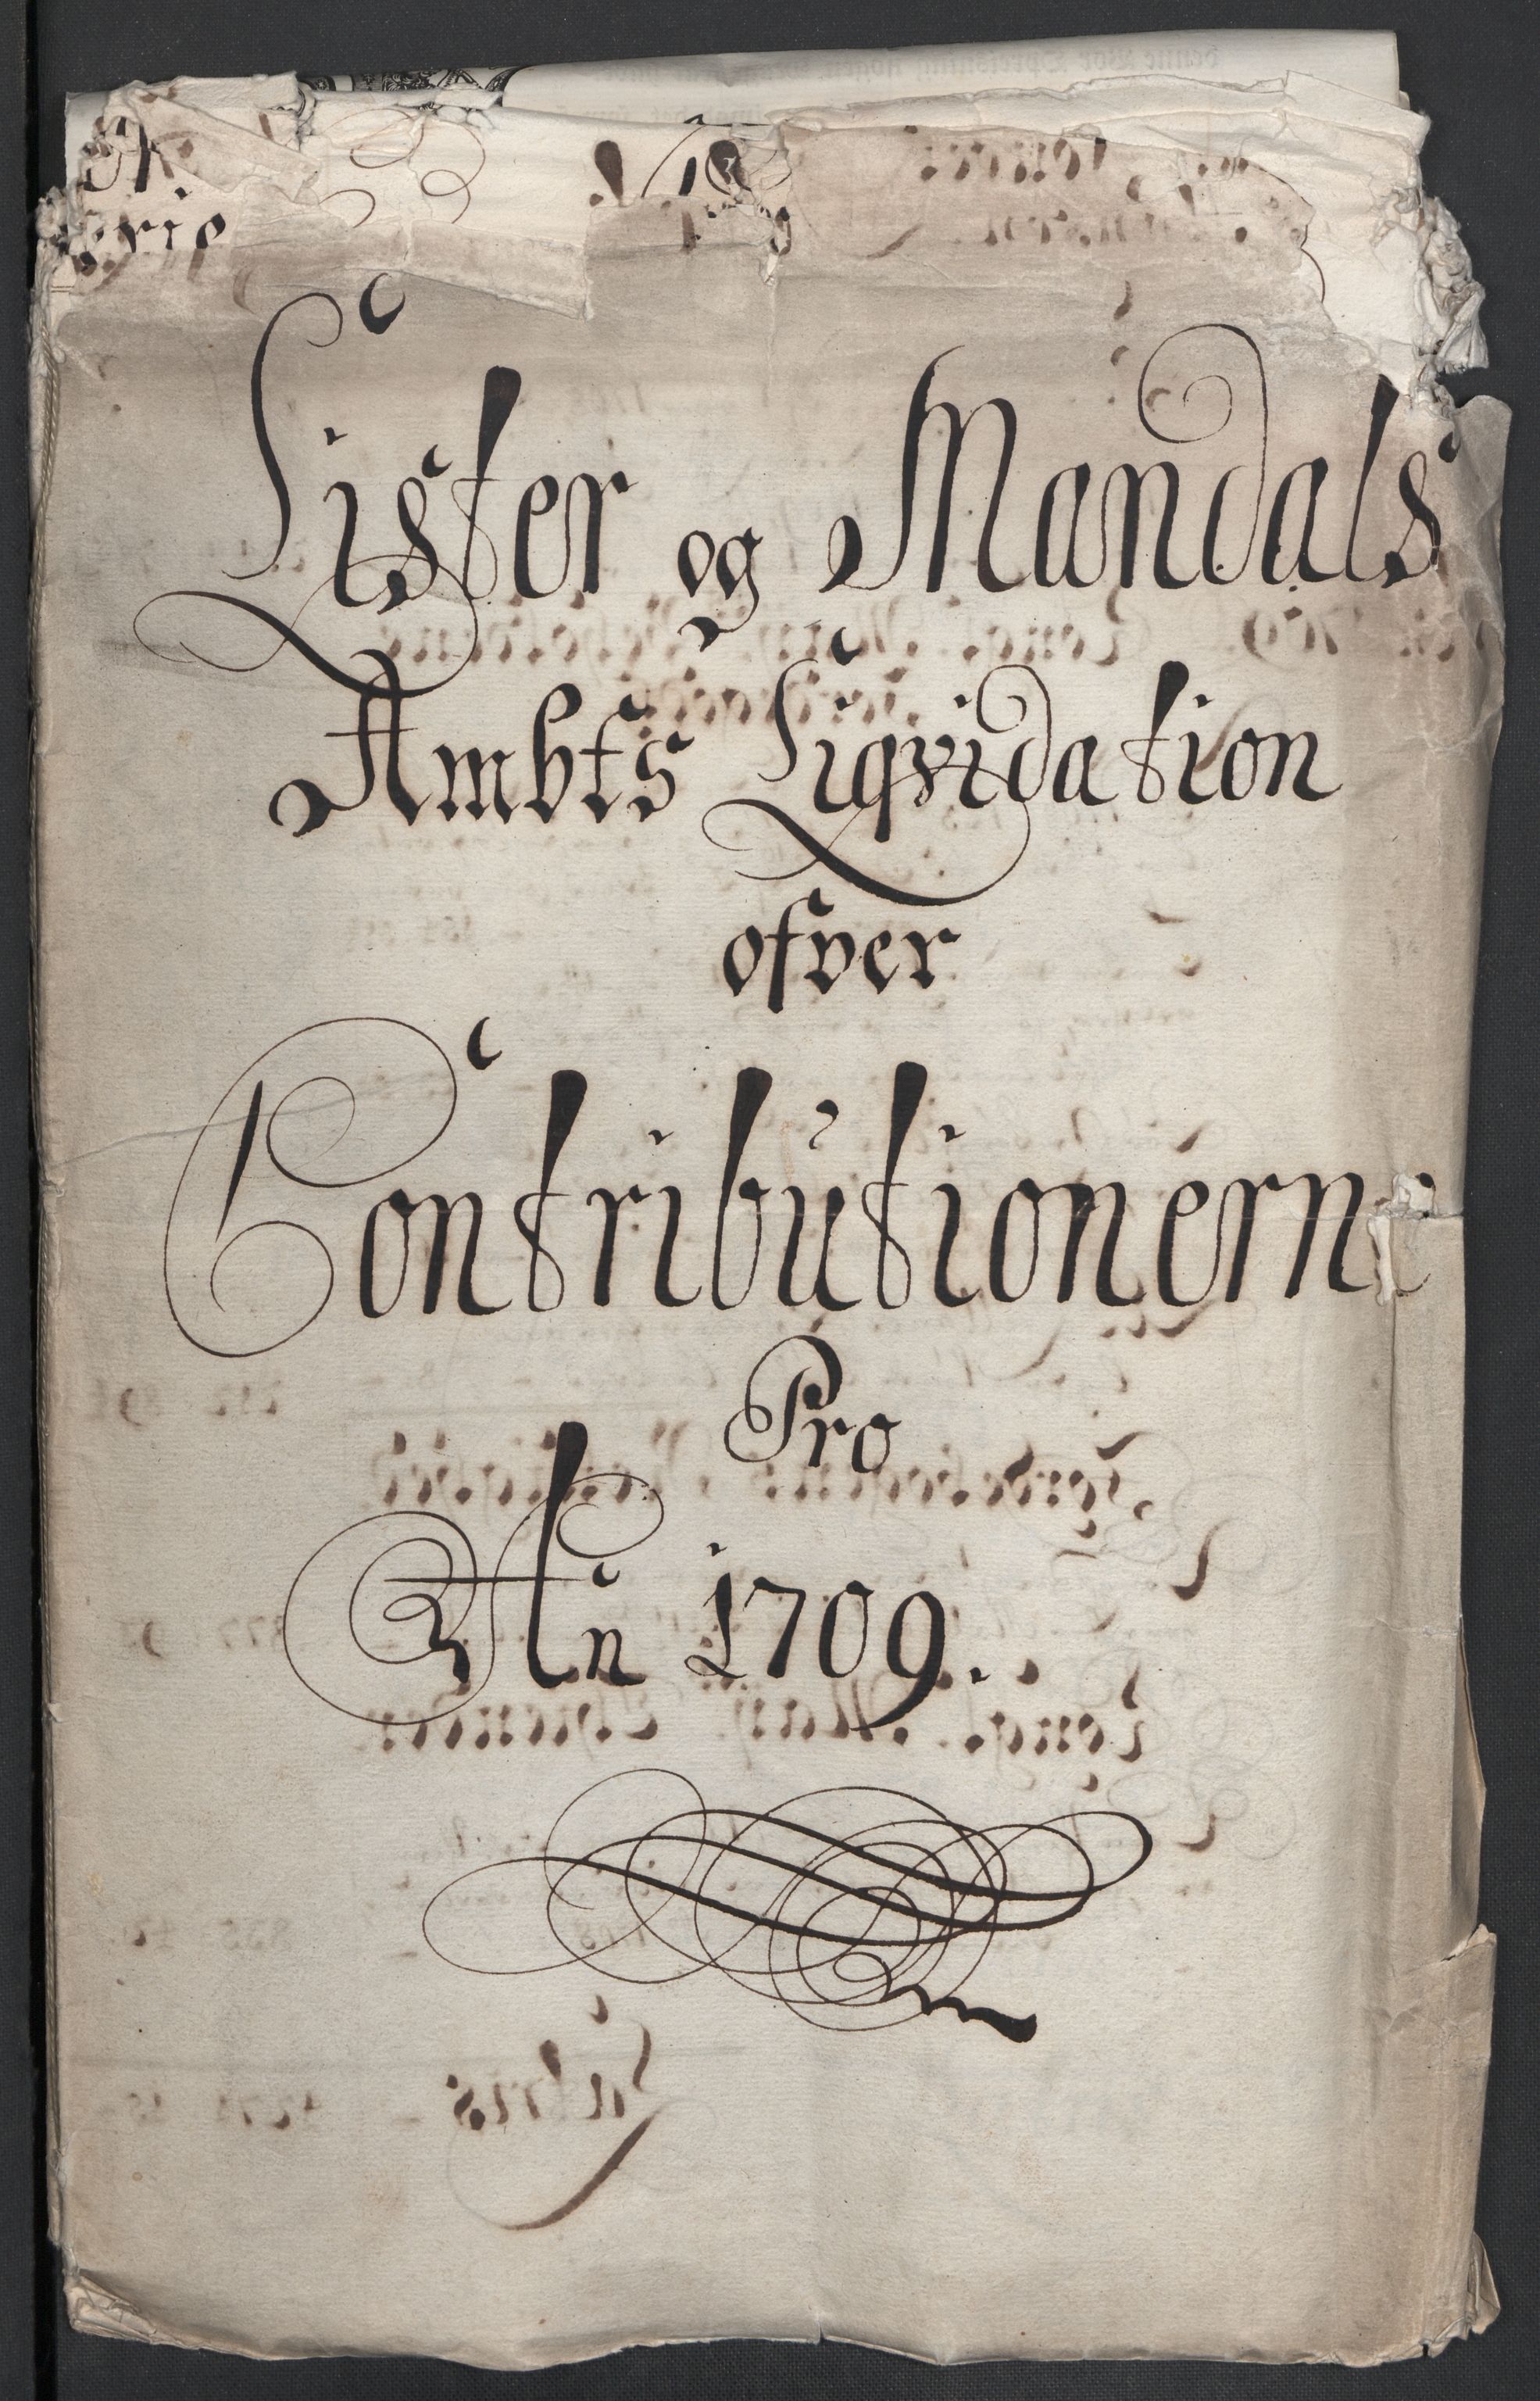 Lister og Mandals
Ambts Liqvidation
ofver
Contributionerne
Pro
An 1709.